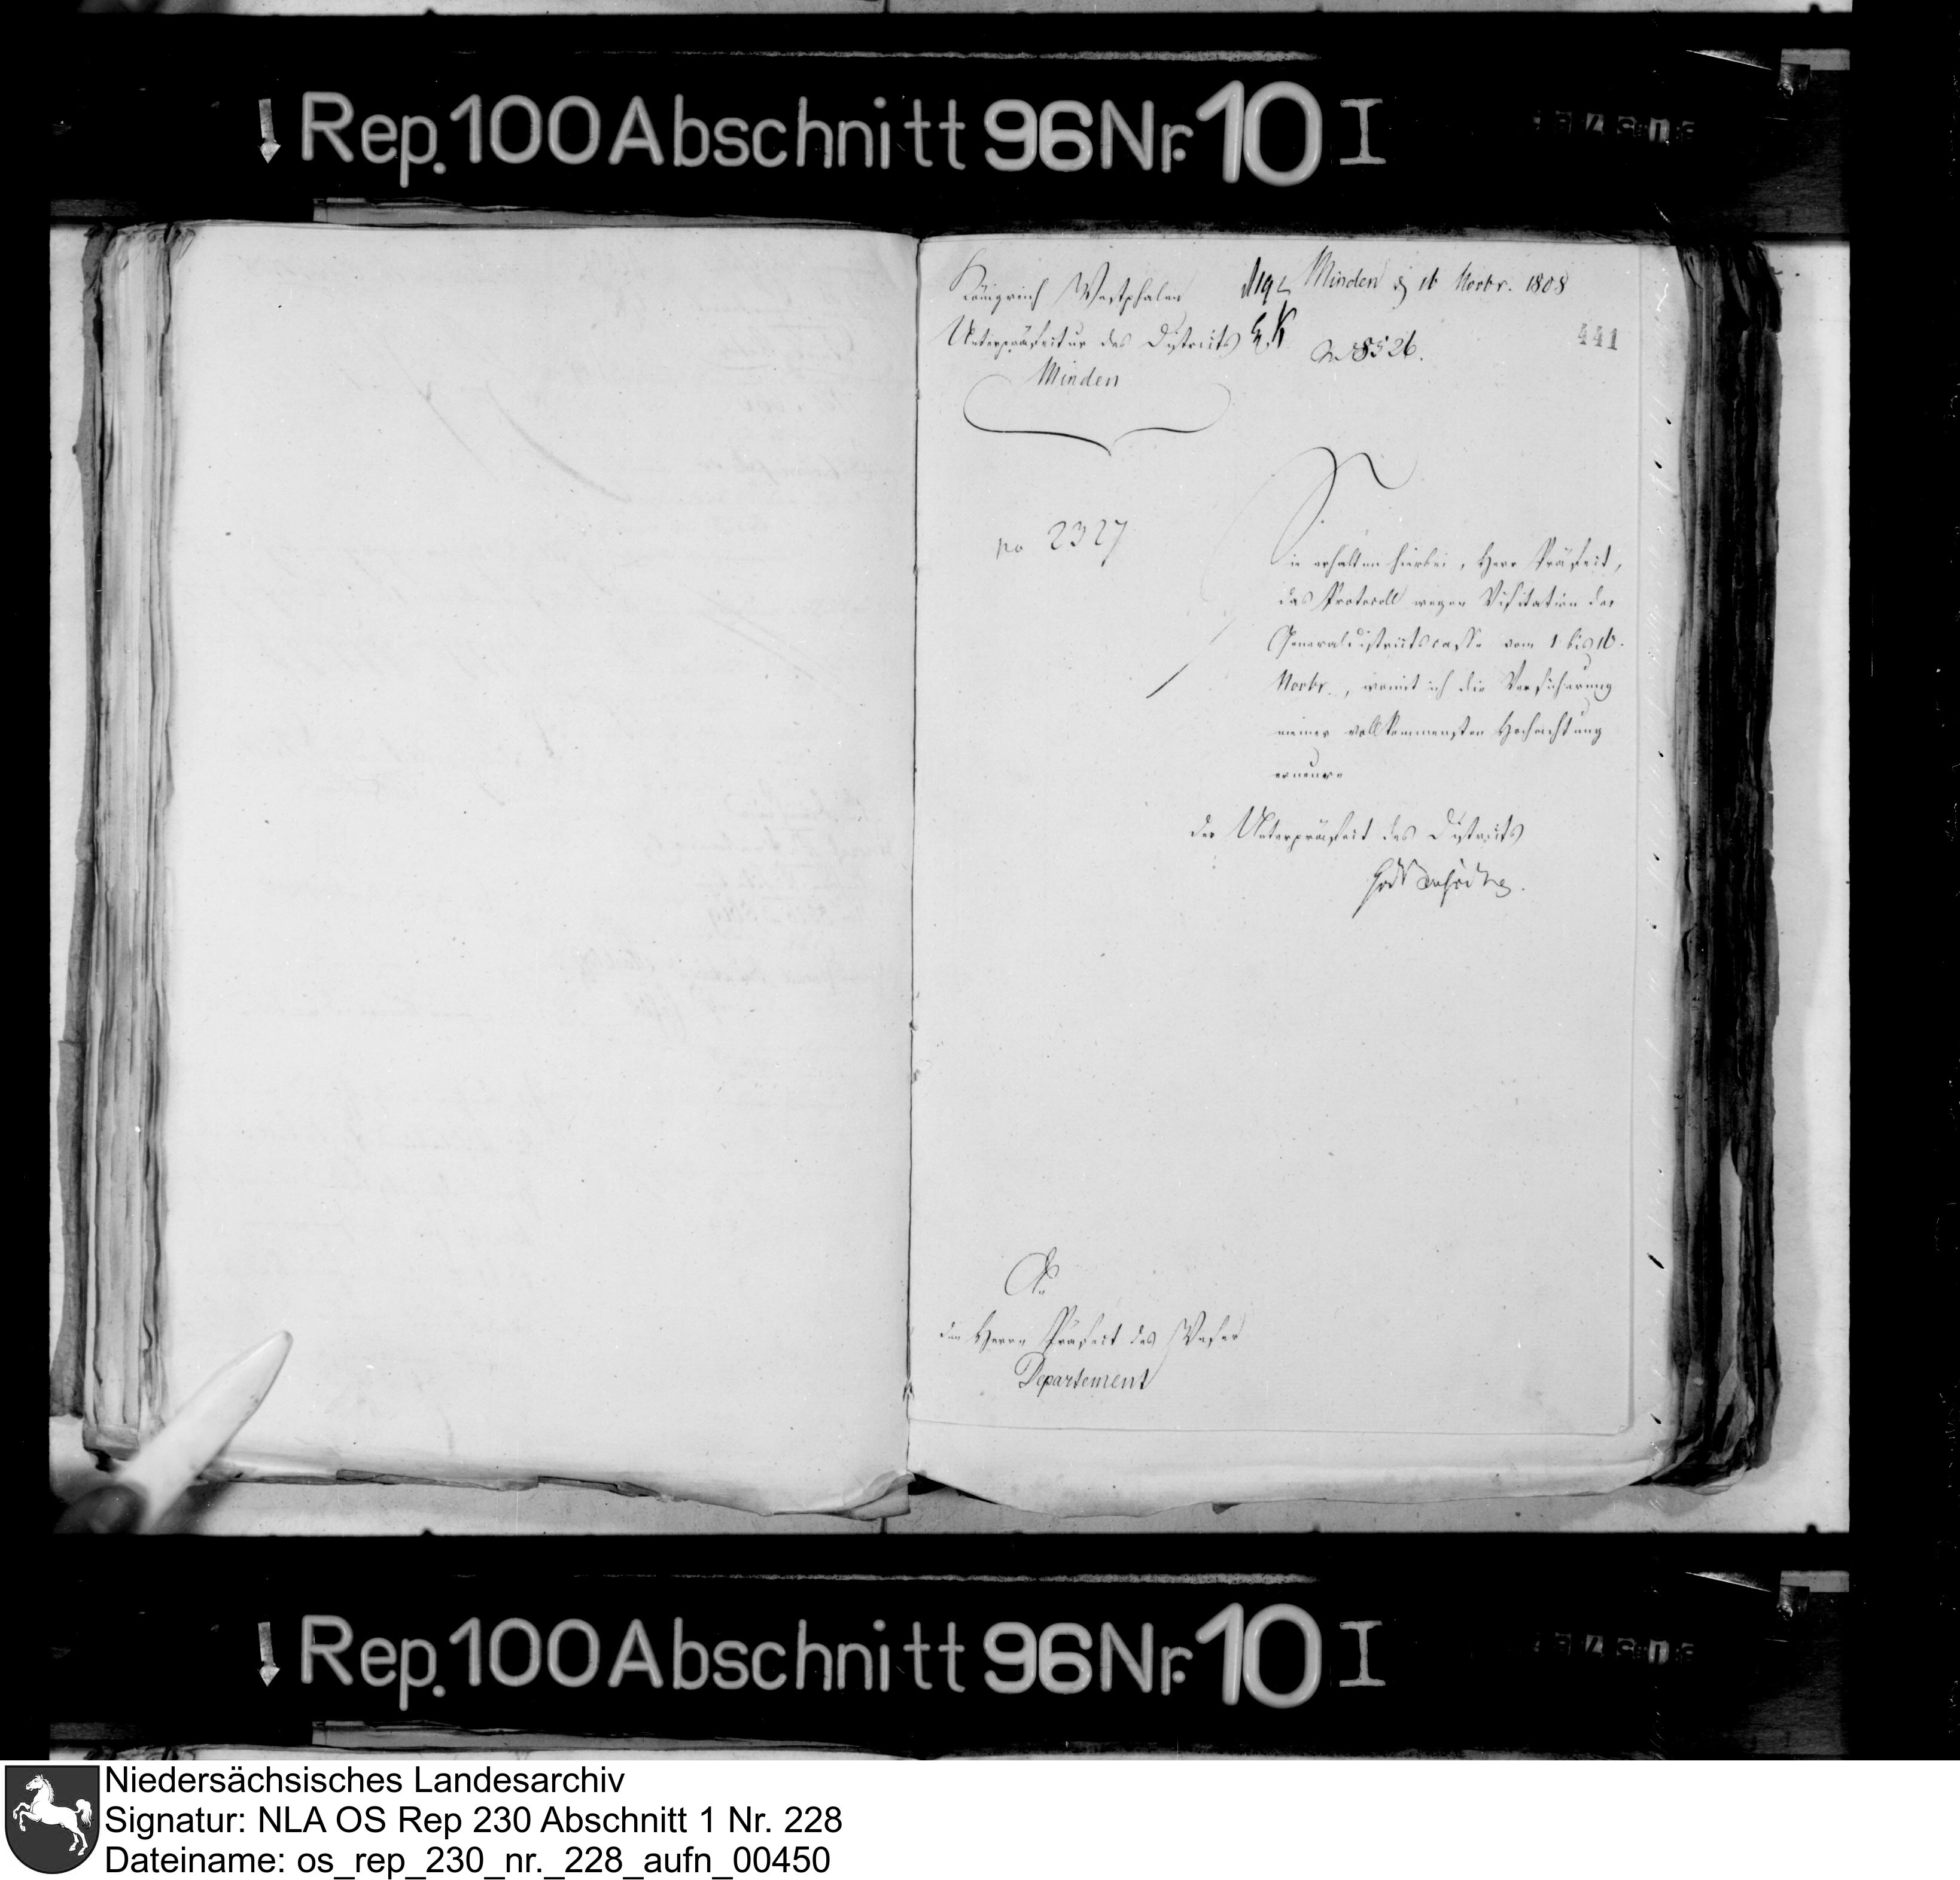 Rep. 100 Abschnitt 96 Nr. 10 I
Königreich Westphalen
Minden d 16 Novbr. 1808
Unterpräfectur des Districts
Minden
441
N 8526.
no 2327
Sie erhalten hierbei, Herr Präfect,
das Protocoll wegen Visitation der
Generaldistrictscasse vom 1 bis 16.
Novbr., womit ich die Versicherung
meiner vollkommensten Hochachtung
erneure
der Unterpräfect des Districts
An
den Herrn Präfect des Weser
Departement
Rep. 100 Abschnitt 96 Nr. 10 I
Niedersächsisches Landesarchiv
Signatur: NLA OS Rep 230 Abschnitt 1 Nr. 228
Dateiname: os_rep_230_nr._228_aufn_00450